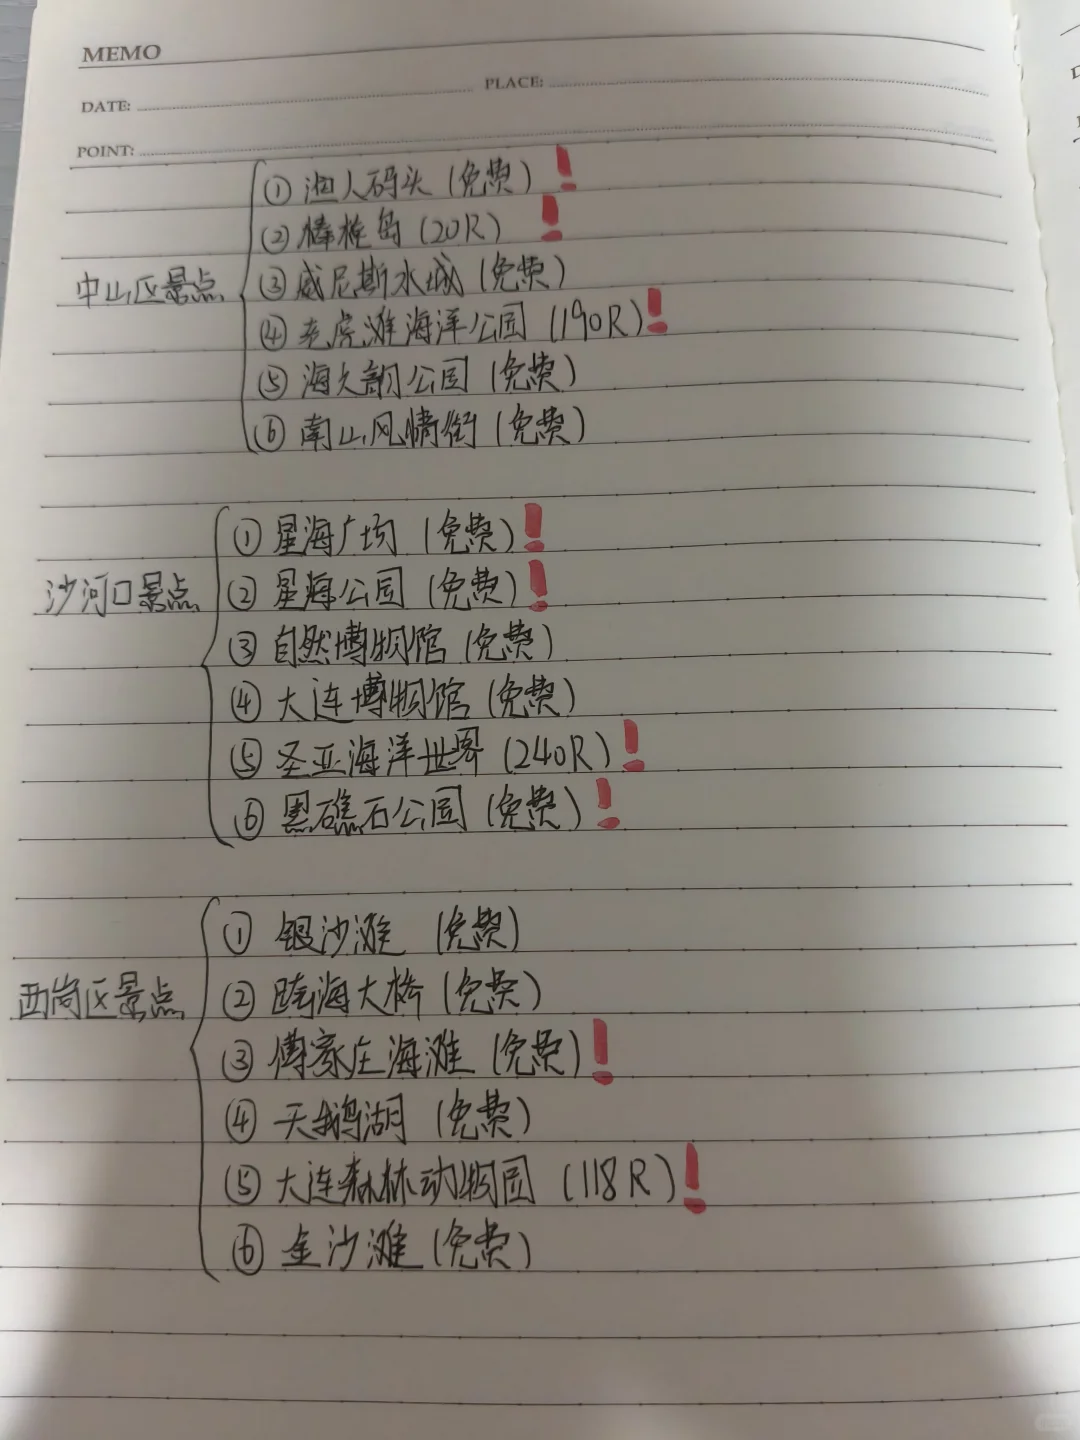 MEMO
PLACE:
DATE:
POINT:
中山区景点
① 渔人码头 (免费) !
② 棒棰岛 (20R) !
③ 威尼斯水城 (免费)
④ 老虎滩海洋公园 (190R) !
⑤ 海之韵公园 (免费)
⑥ 南山风情街 (免费)
沙河口景点
① 星海广场 (免费) !
② 星海公园 (免费) !
③ 自然博物馆 (免费)
④ 大连博物馆 (免费)
⑤ 圣亚海洋世界 (240R) !
⑥ 黑礁石公园 (免费) !
西岗区景点
① 银沙滩 (免费)
② 跨海大桥 (免费)
③ 傅家庄海滩 (免费) !
④ 天鹅湖 (免费)
⑤ 大连森林动物园 (118R) !
⑥ 金沙滩 (免费)